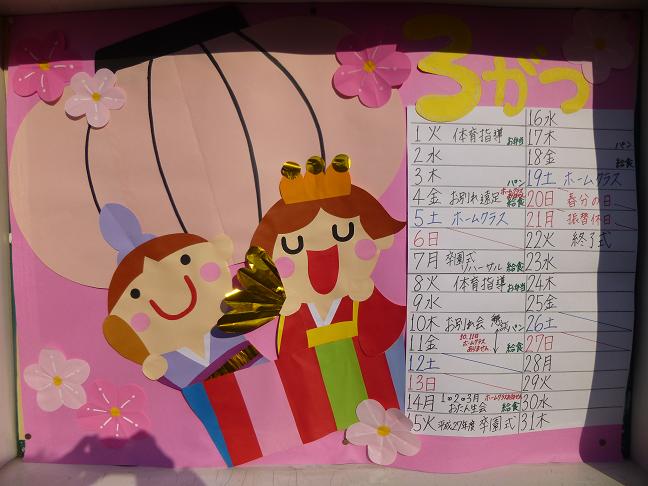 3がつ
1火 体育指導 お弁当
2水
3木 パン
4金 お別れ遠足 給食
5土 ホームクラス
6日
7月 卒園式リハーサル 給食
8火 体育指導 お弁当
9水
10木 お別れ会 パン
11金 10.11日ホームクラスありません 給食
12土
13日
14月 1・2・3月おたん生会 ホームクラスありません 給食
15火 平成27年度 卒園式
16水
17木 パン
18金 給食
19土 ホームクラス
20日 春分の日
21月 振替休日
22火 終了式
23水
24木
25金
26土
27日
28月
29火
30水
31木